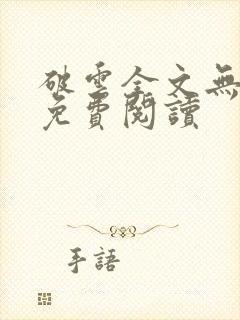 破雲全文無
免費閱讀
手語